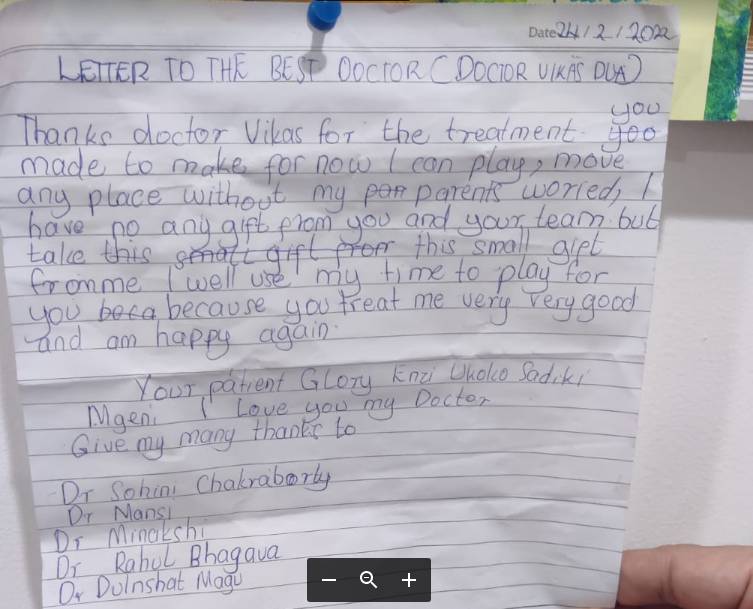 Date 24/2/2022
LETTER TO THE BEST DOCTOR (DOCTOR VIKAS DUA)
you
Thanks doctor Vikas for the treatment yoo
made to make for now I can play, move
any place without my parents woried, I
have no any gift from you and your team. but
take this small gift from this small gift
from me I well use my time to play for
you beca because you treat me very very good
and am happy again.
Your patient Glory Enzi Ukoko Sadiki
Mgeni I Love you my Doctor
Give my many thanks to
Dr Sohini Chakraborty
Dr Mansi
Dr Minakshi
Dr Rahul Bhagava
Dr Dulnshat Magu